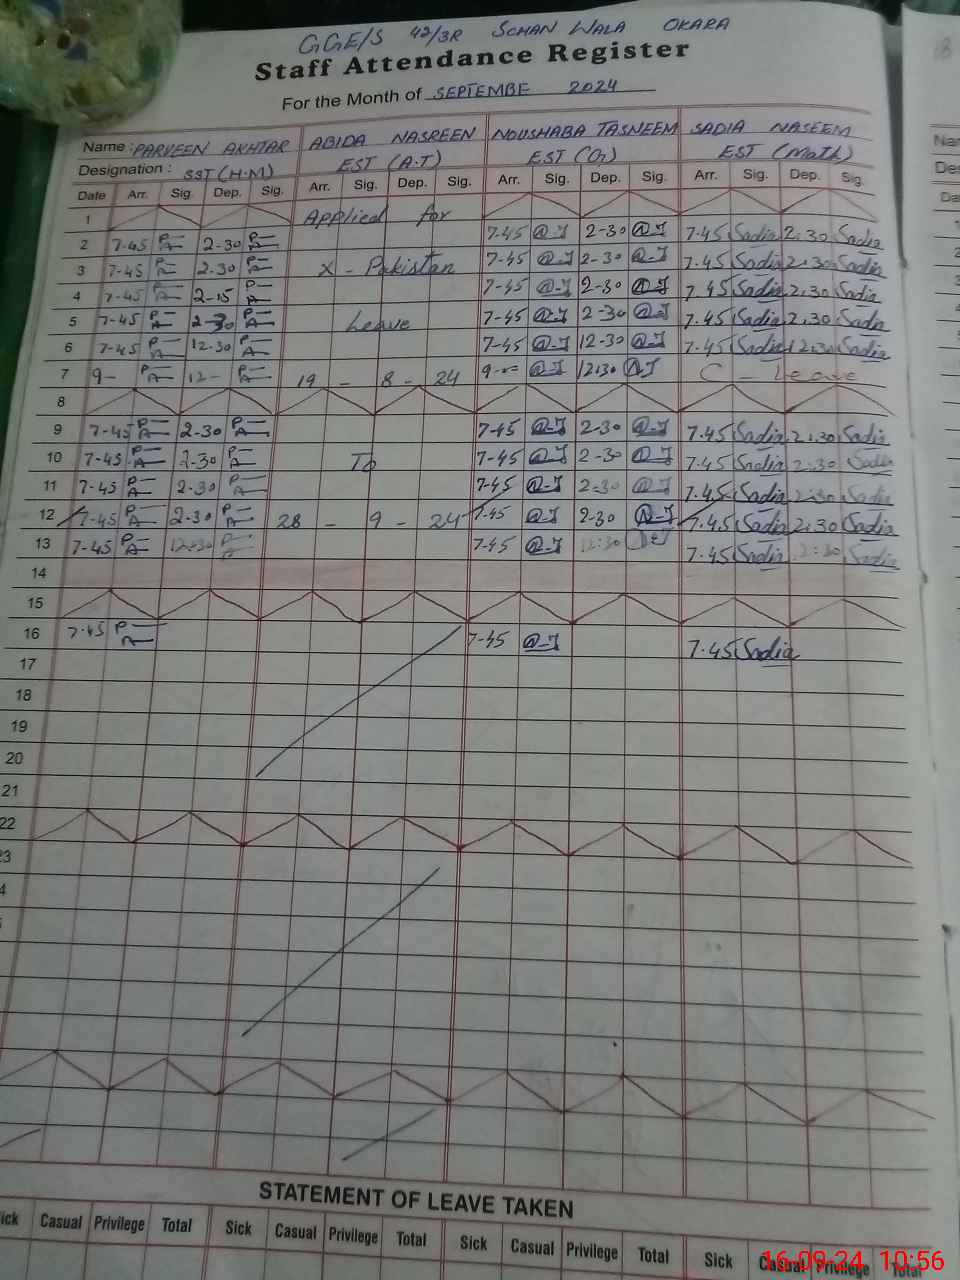 GGE/S 42/3R SOHAN WALA OKARA
Staff Attendance Register
For the Month of SEPTEMBE 2024
Name : PARVEEN AKHTAR ABIDA NASREEN NOUSHABA TASNEEM SADIA NASEEM
Designation : SST (H.M) EST (A.T) EST (Or) EST (Math)
Date Arr. Sig. Dep. Sig. Arr. Sig. Dep. Sig. Arr. Sig. Dep. Sig. Arr. Sig. Dep. Sig.
1 Applied for
2 7-45 2-30 7-45 2-30 7.45 Sadia 2.30 Sadia
3 7-45 2-30 X - Pakistan 7-45 2-30 7.45 Sadia 2.30 Sadia
4 7-45 2-15 7-45 2-30 7.45 Sadia 2.30 Sadia
5 7-45 2-30 Leave 7-45 2-30 7.45 Sadia 2.30 Sadia
6 7-45 12-30 7-45 12-30 7.45 Sadia 12.30 Sadia
7 9- 12- 19 - 8 - 24 9- 12.30 C - Leave
8
9 7-45 2-30 7-45 2-30 7.45 Sadia 2.30 Sadia
10 7-45 2-30 To 7-45 2-30 7.45 Sadia 2:30 Sadia
11 7-45 2-30 7-45 2-30 7.45 Sadia 2:30 Sadia
12 7-45 2-30 28 - 9 - 24 7-45 2-30 7.45 Sadia 2.30 Sadia
13 7-45 12-30 7-45 12:30 7.45 Sadia Sadia
14
15
16 7-45 7-45 7.45 Sadia
17
18
19
20
21
22
STATEMENT OF LEAVE TAKEN
Casual Privilege Total Sick Casual Privilege Total Sick Casual Privilege Total Sick Casual Privilege Total
16.09.24 10:56